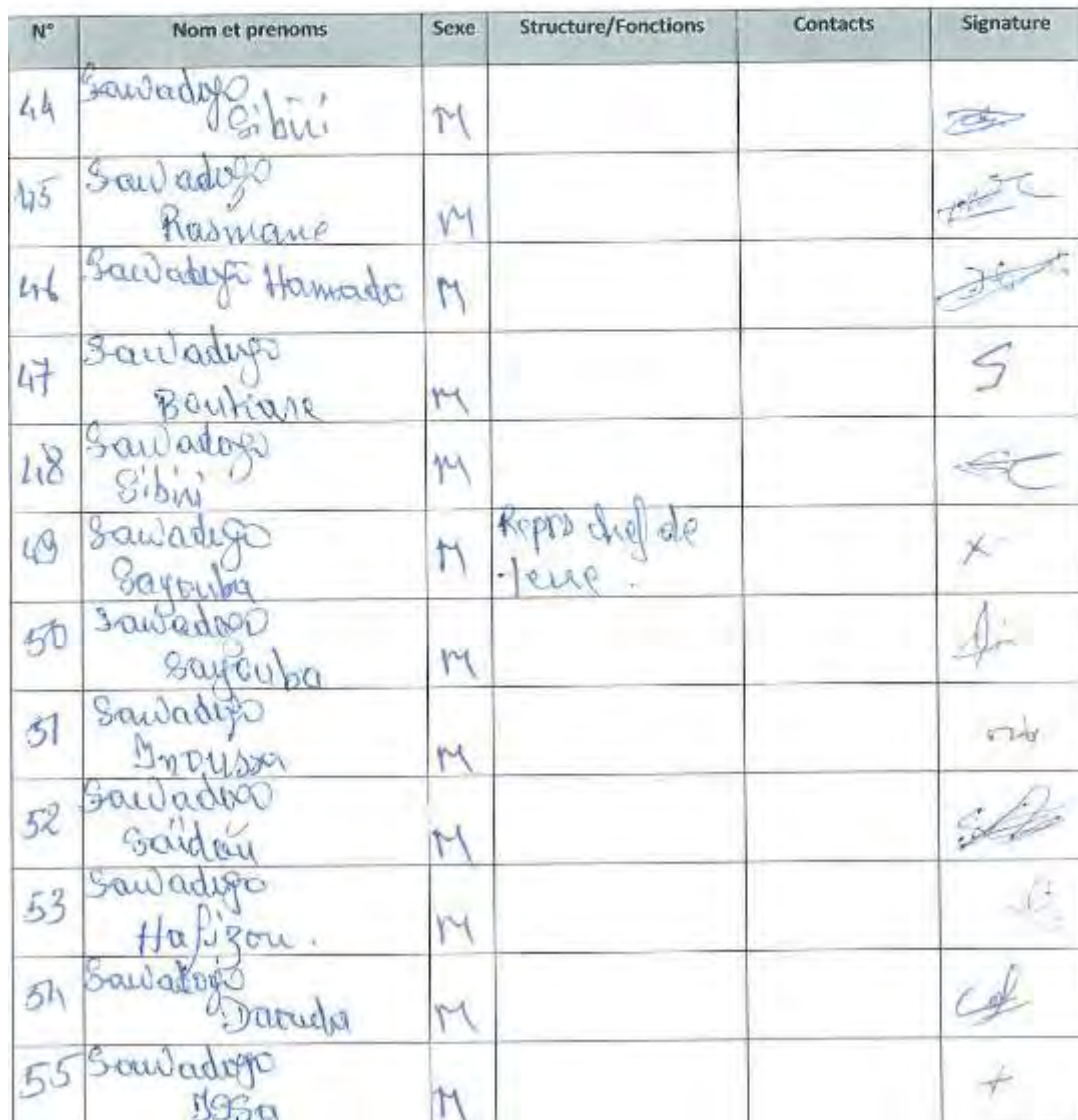 N° Nom et prenoms Sexe Structure/Fonctions Contacts Signature
44 Sawadogo
Sibiri M
45 Sawadogo
Rasmane M
46 Sawadogo Hamado M
47 Sawadogo
Boukare M
48 Sawadogo
Sibiri M
49 Sawadogo M Reprs chef de
Sayouba terre . x
50 Sawadogo
Sayouba M
51 Sawadogo
Inoussa M
52 Sawadogo
Saïdou M
53 Sawadogo
Hafizou . M
54 Sawadogo
Daouda M
55 Sawadogo
Issa M +